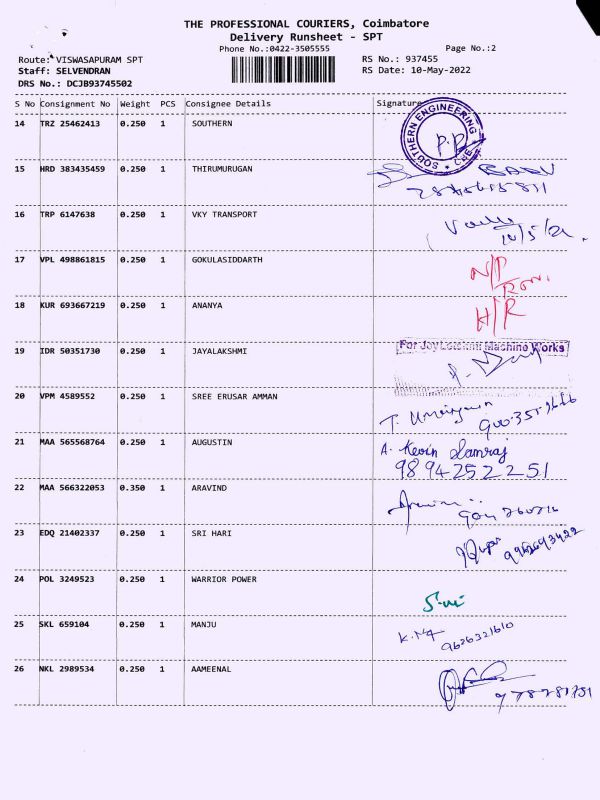 THE PROFESSIONAL COURIERS, Coimbatore
Delivery Runsheet - SPT
Phone No.:0422-3505555 Page No.:2
Route: VISWASAPURAM SPT RS No.: 937455
Staff: SELVENDRAN RS Date: 10-May-2022
DRS No.: DCJB93745502
S No Consignment No Weight PCS Consignee Details Signature
14 TRZ 25462413 0.250 1 SOUTHERN
SOUTHERN ENGINEERING
15 HRD 383435459 0.250 1 THIRUMURUGAN
16 TRP 6147638 0.250 1 VKY TRANSPORT
17 VPL 498861815 0.250 1 GOKULASIDDARTH N/P
18 KUR 693667219 0.250 1 ANANYA H/R
19 IDR 50351730 0.250 1 JAYALAKSHMI For Joy Lakshmi Machine Works
20 VPM 4589552 0.250 1 SREE ERUSAR AMMAN
21 MAA 565568764 0.250 1 AUGUSTIN A. Kevin Samraj
9894252251
22 MAA 566322053 0.350 1 ARAVIND
23 EDQ 21402337 0.250 1 SRI HARI
24 POL 3249523 0.250 1 WARRIOR POWER
25 SKL 659104 0.250 1 MANJU 9626321610
26 NKL 2989534 0.250 1 AAMEENAL